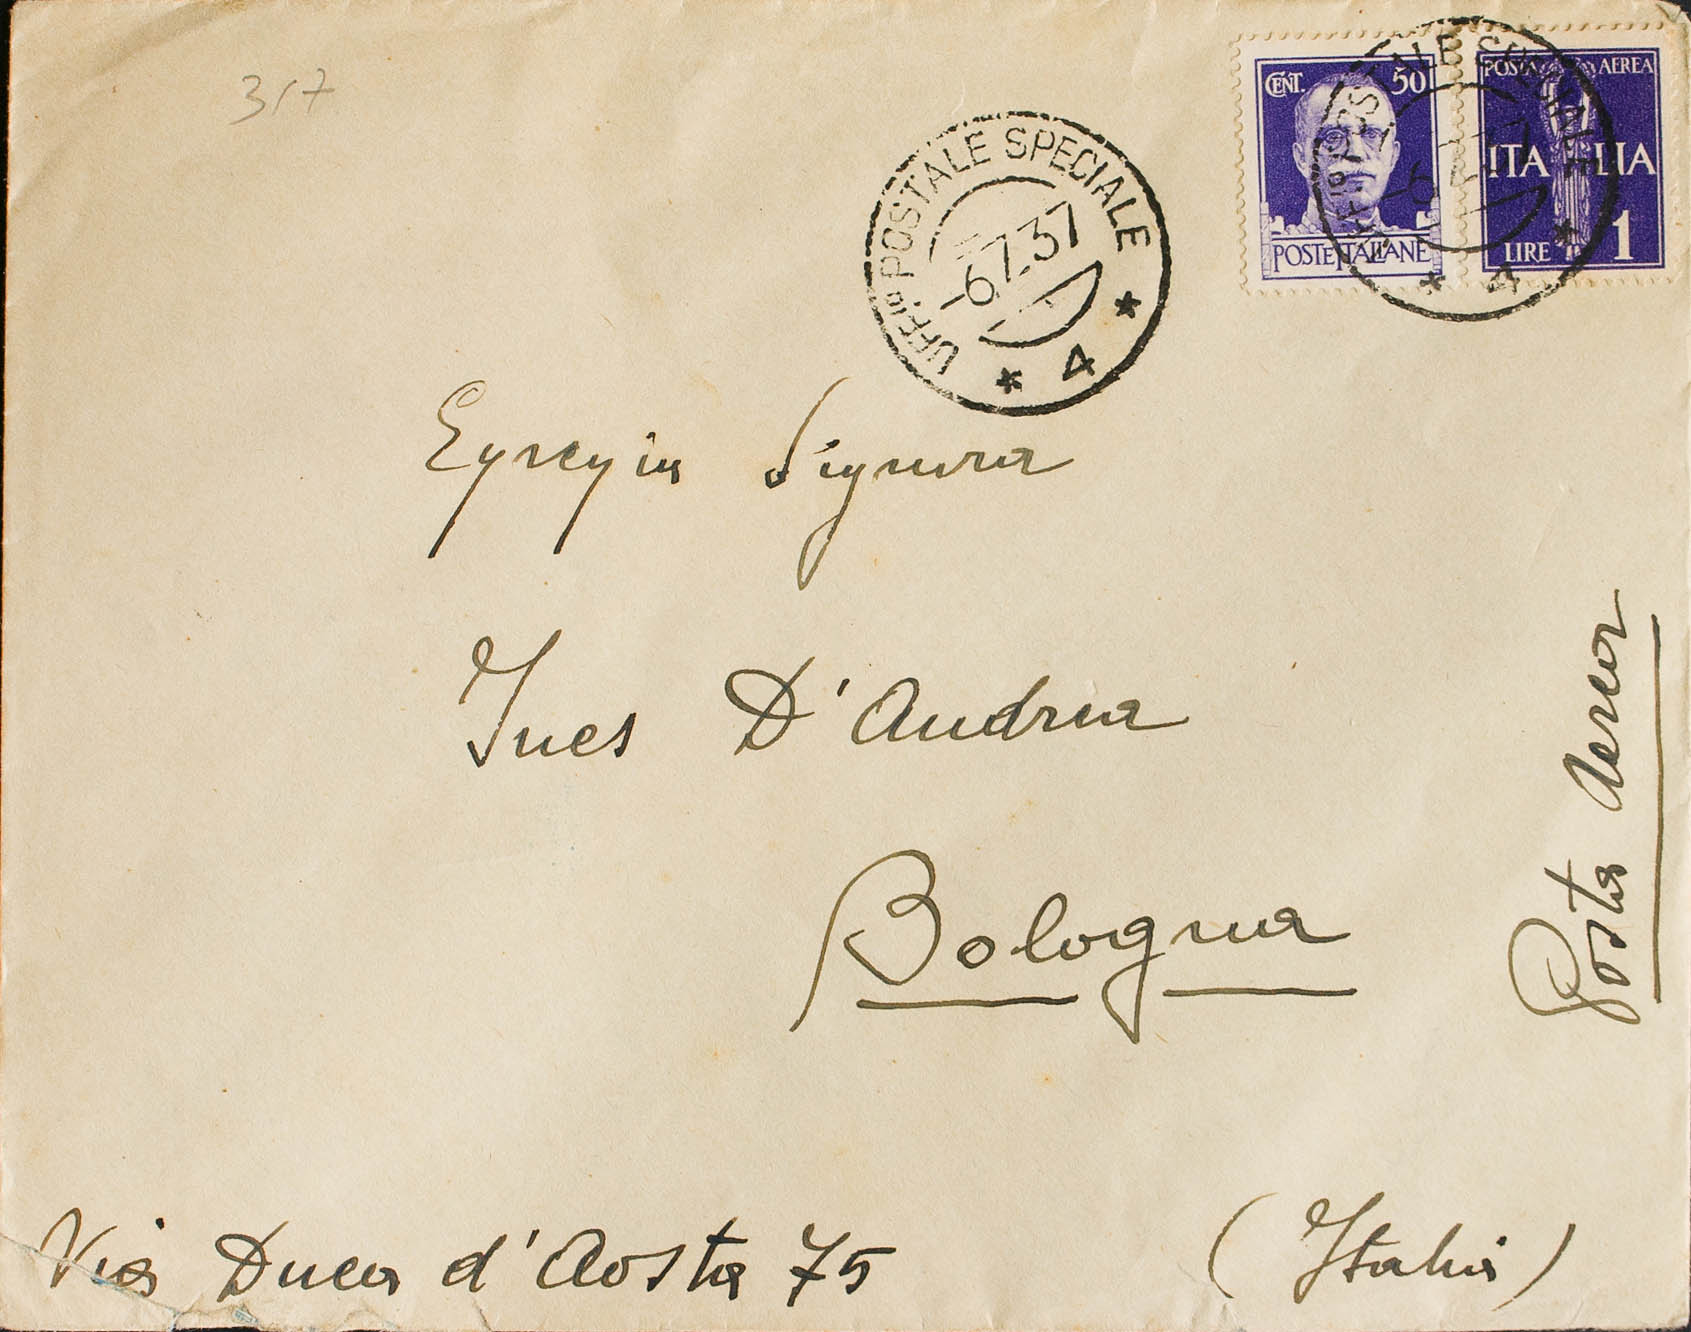 3/7
CENT. 50
POSTE ITALIANE
POSTA AEREA
ITALIA
LIRE 1
UFFIO POSTALE SPECIALE
-6.7.37
* 4 *
UFFIO POSTALE SPECIALE
* 4 *
Egregia Signora
Ines D'Andrea
Bologna
Posta Aerea
Via Duca d'Aosta 75
(Italia)